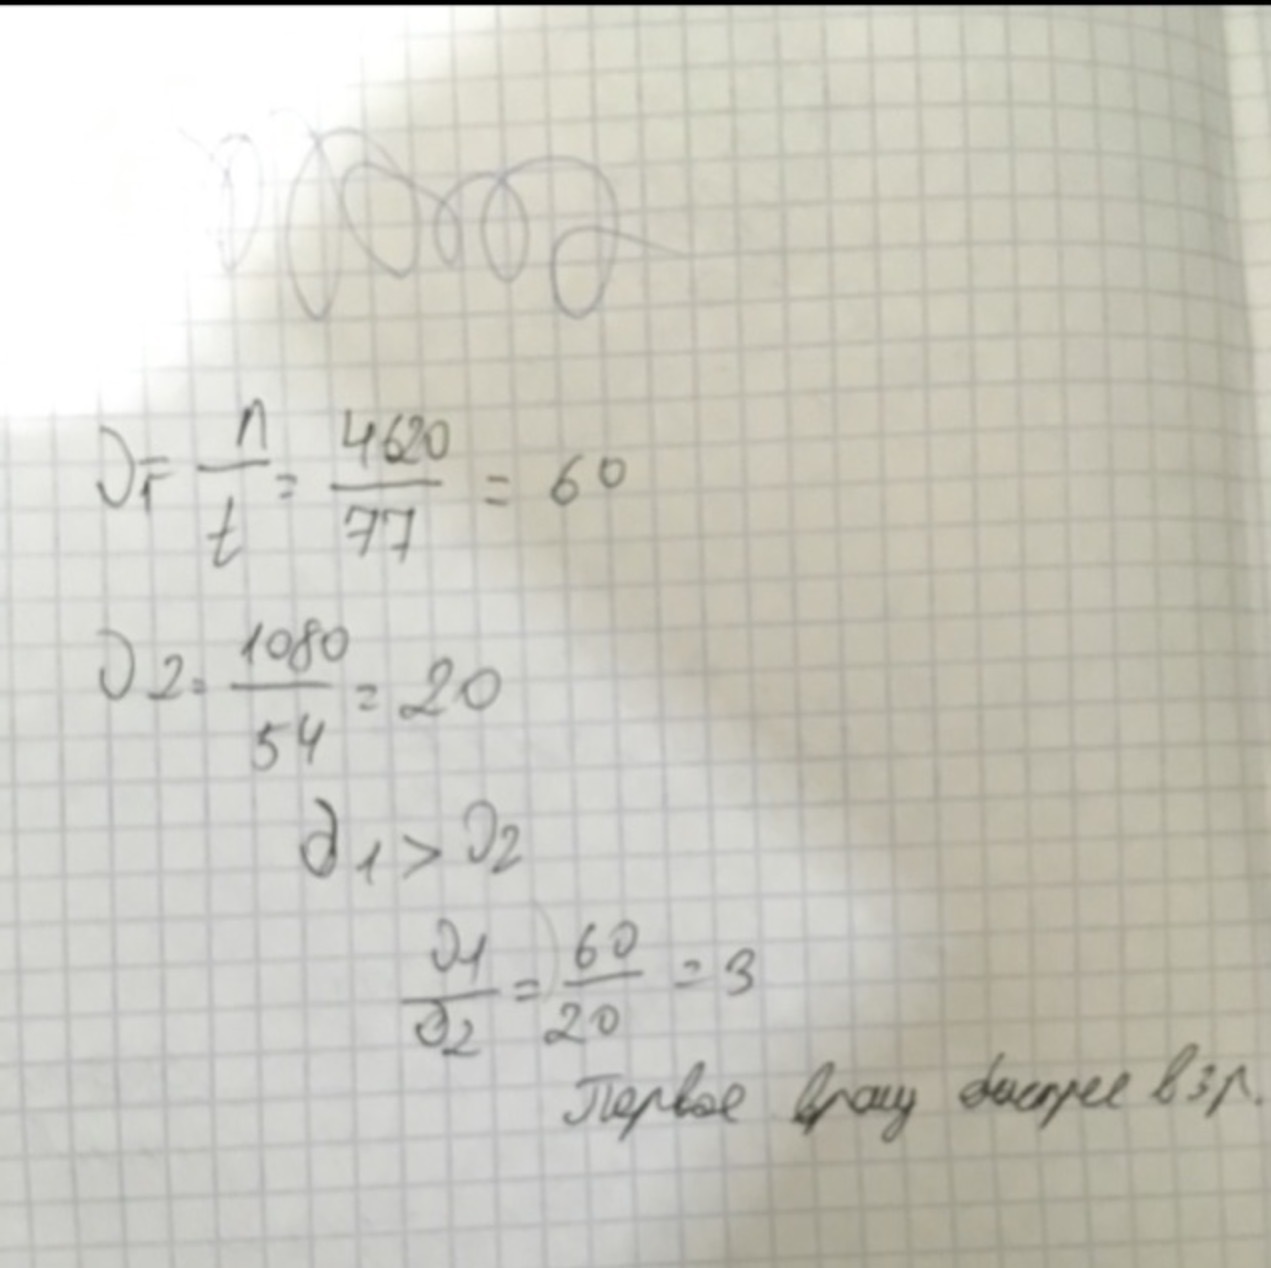 υ1 = n/t = 4620/77 = 60
υ2 = 1080/54 = 20
υ1 > υ2
υ1/υ2 = 60/20 = 3
Первое вращ быстрее в 3 р.